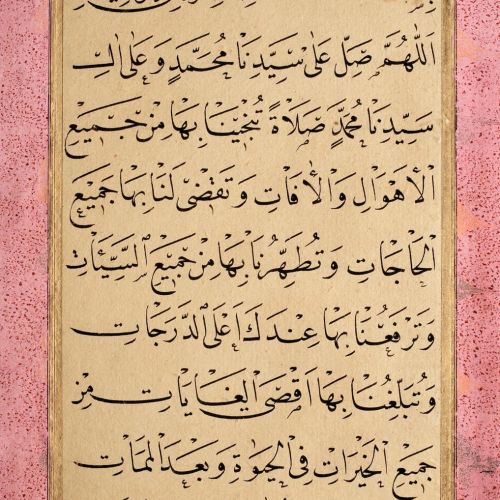 اللهم صل على سيدنا محمد وعلى ال
سيدنا محمد صلاة تنجينا بها من جميع
الاهوال والافات وتقضى لنا بها جميع
الحاجات وتطهرنا بها من جميع السيئات
وترفعنا بها عندك اعلى الدرجات
وتبلغنا بها اقصى الغايات من
جميع الخيرات فى الحيوة وبعد الممات